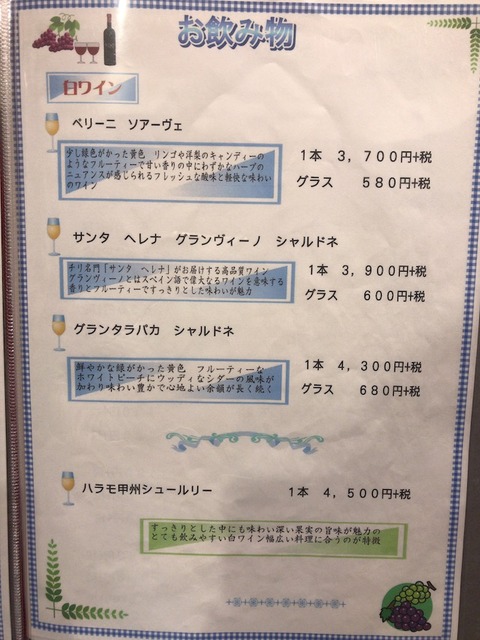 お飲み物
白ワイン
ベリーニ ソアーヴェ
少し緑色がかった黄色 リンゴや洋梨のキャンディーの
ようなフルーティーで甘い香りの中にわずかなハーブの
ニュアンスが感じられるフレッシュな酸味と軽快な味わい
のワイン
1本 3,700円+税
グラス 580円+税
サンタ ヘレナ グランヴィーノ シャルドネ
チリ名門「サンタ ヘレナ」がお届けする高品質ワイン
グランヴィーノとはスペイン語で偉大なるワインを意味する
香りとフルーティーですっきりとした味わいが魅力
1本 3,900円+税
グラス 600円+税
グランタラパカ シャルドネ
鮮やかな緑がかった黄色 フルーティーな
ホワイトピーチにウッディなシダーの風味が
加わり味わい豊かで心地よい余韻が長く続く
1本 4,300円+税
グラス 680円+税
ハラモ甲州シュールリー
1本 4,500円+税
すっきりとした中にも味わい深い果実の旨味が魅力の
とても飲みやすい白ワイン幅広い料理に合うのが特徴